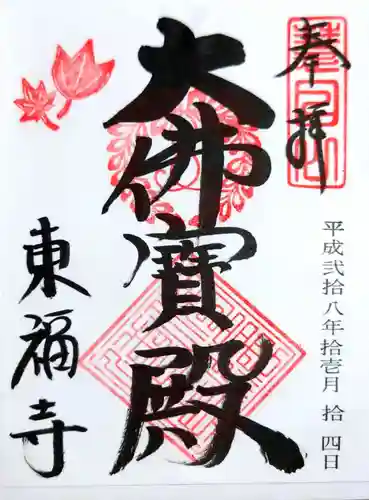 奉拝
平成弐拾八年拾壱月 拾四日
大佛寶殿
東福寺